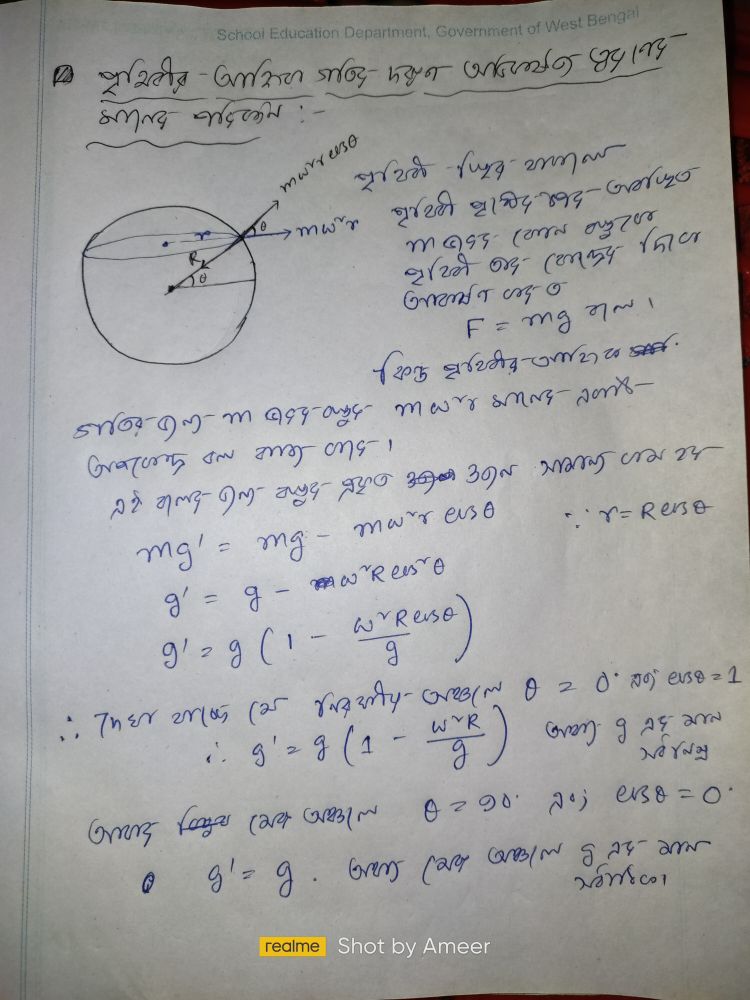 School Education Department, Government of West Bengal
পৃথিবীর আহ্নিক গতির দরুন অভিকর্ষজ ত্বরণের
মানের পরিবর্তন :-
mω²r cosθ
mω²r
θ
r
R
θ
পৃথিবী স্থির থাকলে
পৃথিবী পৃষ্ঠের উপর অবস্থিত
m ভরের কোন বস্তুকে
পৃথিবী তার কেন্দ্রের দিকে
আকর্ষণ করে
F = mg বলে।
কিন্তু পৃথিবীর আহ্নিক
গতির জন্য m ভরের বস্তুর mω²r মানের একটি
অপকেন্দ্র বল কাজ করে।
এই বলের জন্য বস্তুর প্রকৃত ওজন সামান্য কম হয়
mg' = mg - mω²r cosθ ∵ r = R cosθ
g' = g - ω²R cos²θ
g' = g (1 - ω²R cosθ/g)
∴ দেখা যাচ্ছে যে নিরক্ষীয় অঞ্চলে θ = 0° এবং cosθ = 1
∴ g' = g (1 - ω²R/g) অর্থাৎ g এর মান
সর্বনিম্ন
আবার মেরু অঞ্চলে θ = 90° এবং cosθ = 0
g' = g . অর্থাৎ মেরু অঞ্চলে g এর মান
সর্বাধিক।
realme Shot by Ameer